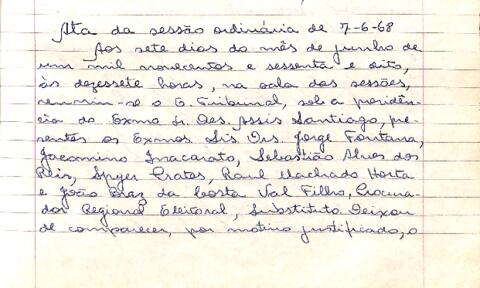 Ata da sessão ordinária de 7-6-68
Aos sete dias do mês de junho de
um mil novecentos e sessenta e oito,
às dezessete horas, na sala das sessões,
reuniu-se o E. Tribunal, sob a presidên-
cia do Exmo Sr. Des. Assis Santiago, pre-
sentes os Exmos. Srs. Drs. Jorge Fontana,
Jacomino Inacarato, Sebastião Alves dos
Reis, Spyer Prates, Raul Machado Horta
e João Braz da Costa Val Filho, Procura-
dor Regional Eleitoral, Substituto. Deixou
de comparecer, por motivo justificado, o